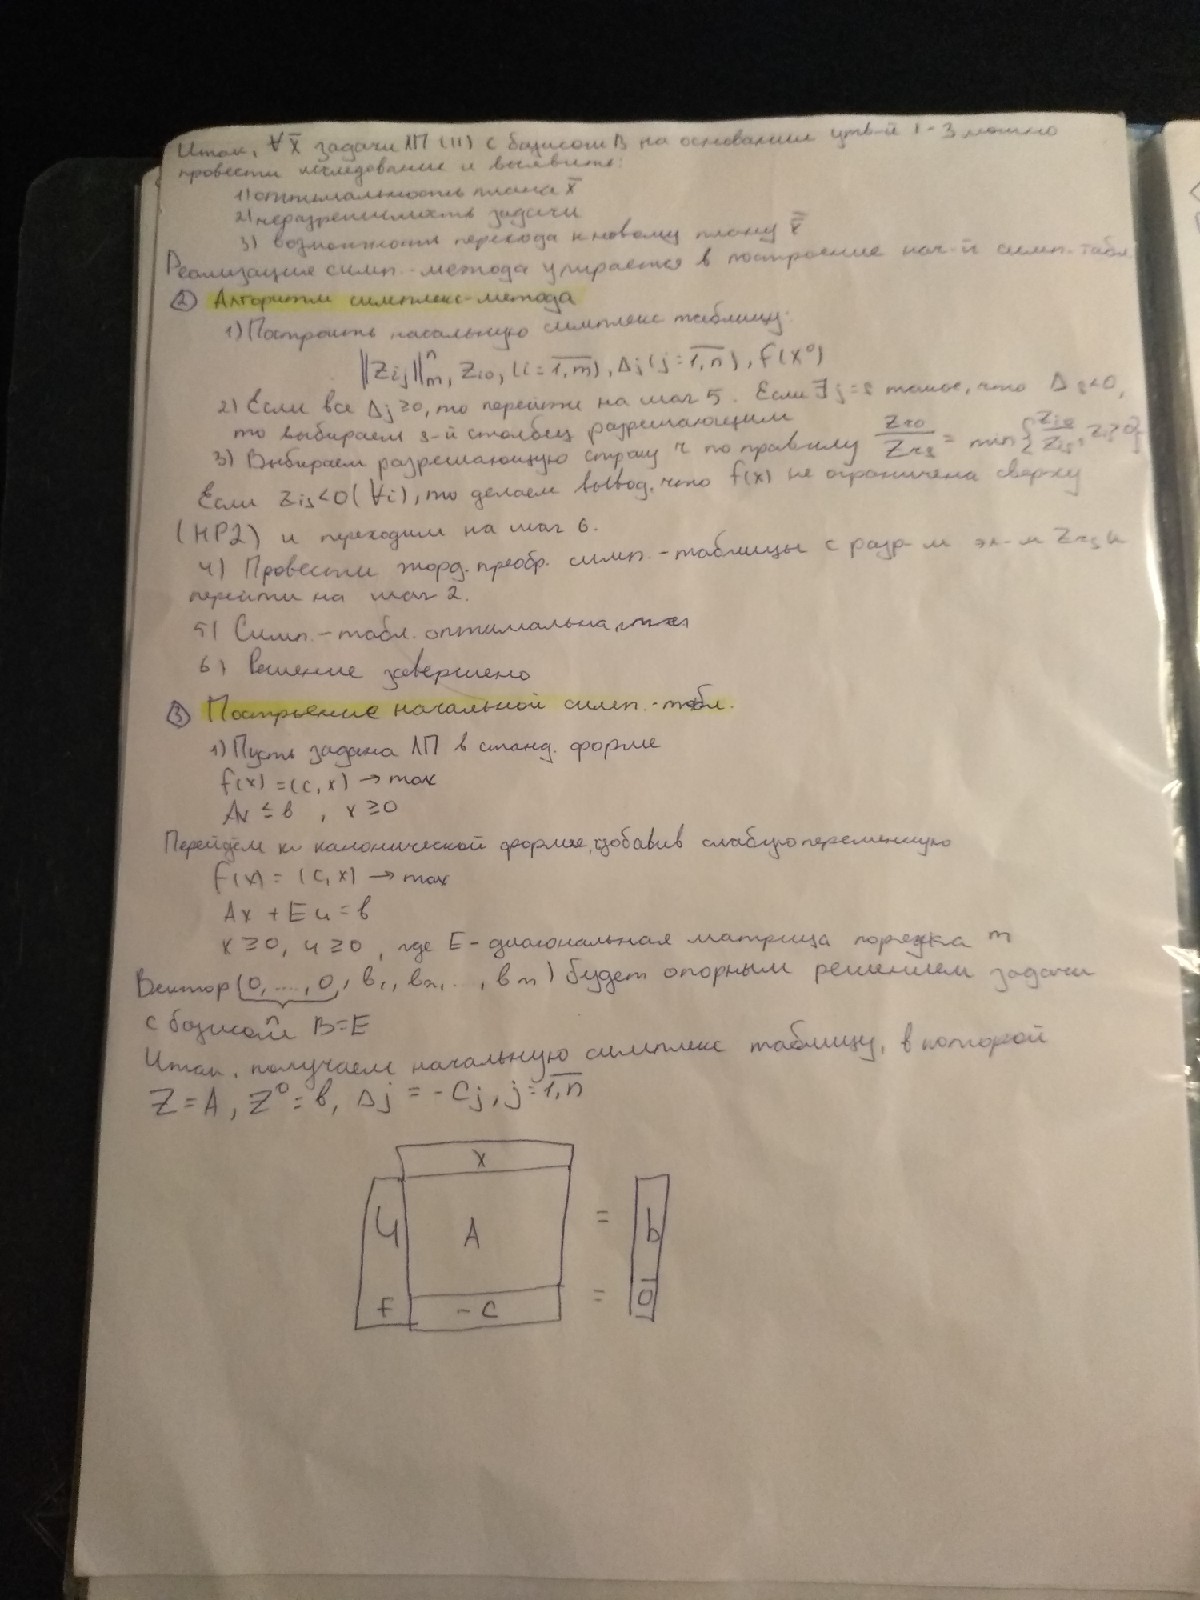 Итак, ∀ x̄ задачи ЛП (II) с базисом B на основании утв-й 1-3 можно
провести исследование и выявить:
1) оптимальность плана x̄
2) неразрешимость задачи
3) возможности перехода к новому плану x̿
Реализация симп.-метода упирается в построение нач-й симп-табл
② Алгоритм симплекс-метода
1) Построить начальную симплекс таблицу:
||Zij||ⁿₘ, Zi0, (i = 1,m), Δj (j = 1,n), f(x⁰)
2) Если все Δj ≥ 0, то перейти на шаг 5. Если ∃ j = s такое, что Δs < 0,
то выбираем s-й столбец разрешающим
3) Выбираем разрешающую строку r по правилу Zr0/Zrs = min{Zi0/Zis, Zis > 0}
Если Zis < 0 (∀i), то делаем вывод, что f(x) не ограничена сверху
(НР2) и переходим на шаг 6.
4) Провести жорд. преобр. симп.-таблицы с разр-м эл-м Zrs и
перейти на шаг 2.
5) Симп.-табл. оптимальна
6) Решение завершено
③ Построение начальной симп.-табл.
1) Пусть задача ЛП в станд. форме
f(x) = (c, x) → max
Ax ≤ b, x ≥ 0
Перейдём к канонической форме, добавив слабую переменную
f(x) = (c, x) → max
Ax + Eu = b
x ≥ 0, u ≥ 0, где E - диагональная матрица порядка m
Вектор (0, ..., 0, b₁, b₂, ..., bₘ) будет опорным решением задачи
n
с базисом B = E
Итак, получаем начальную симплекс таблицу, в которой
Z = A, Z⁰ = b, Δj = -Cj, j = 1,n
x
u A = b
f -c = 0